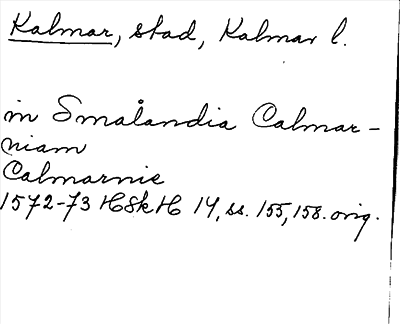 Kalmar, stad, Kalmar l.
in Smålandia Calmar-
niam
Calmarnie
1572-73 HSkH 14, ss. 155, 158. orig.